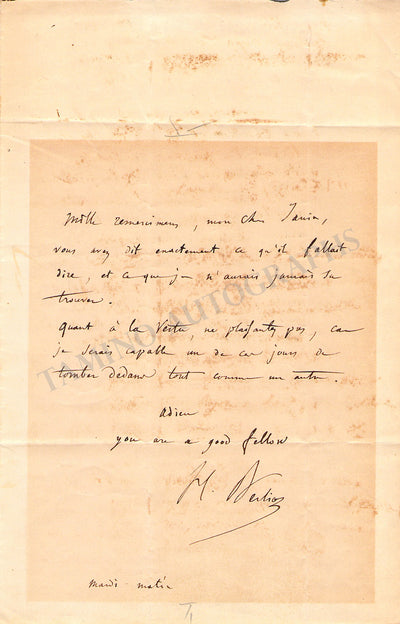 Mille remerciemens, mon cher Janin,
vous avez dit exactement ce qu'il fallait
dire, et ce que je n'aurais jamais su
trouver.
Quant à la Vertu, ne plaisantez pas, car
je serais capable un de ces jours de
tomber dedans tout comme un autre.
Adieu
you are a good fellow
H. Berlioz
mardi matin
TAMINO AUTOGRAPHS